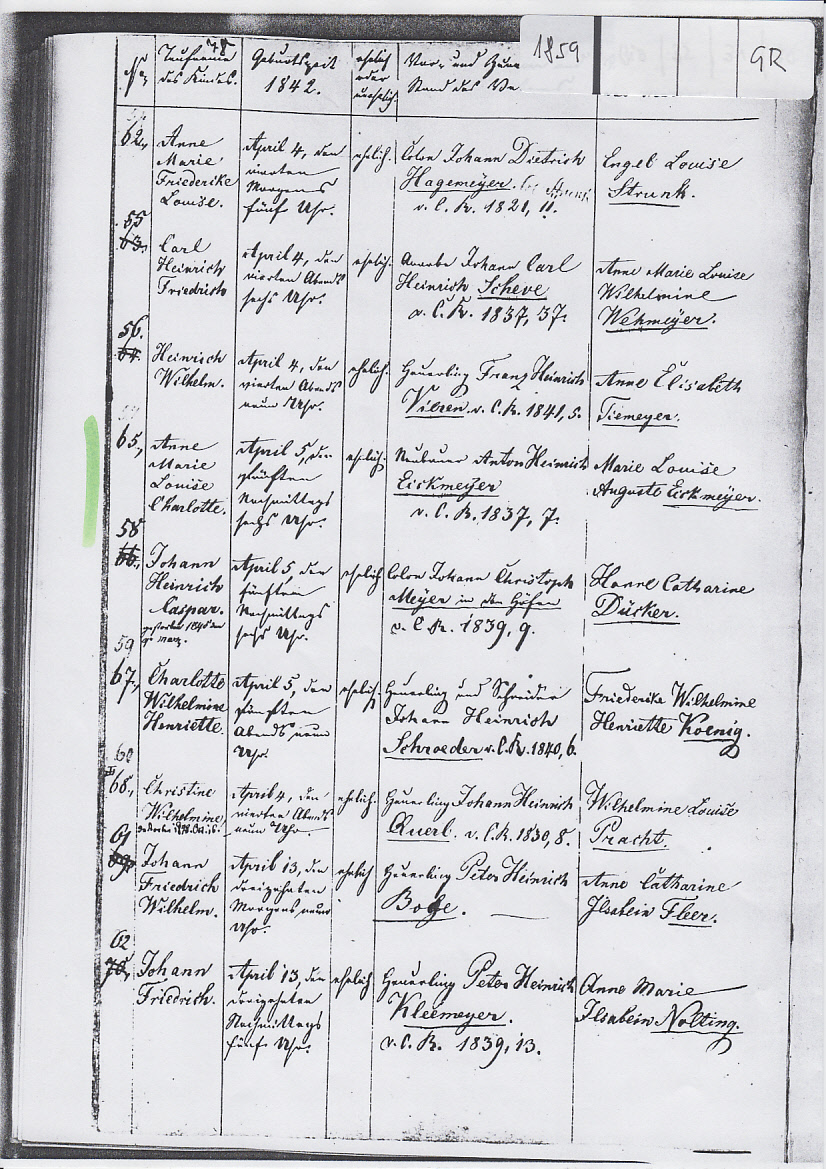 1859
GR
78
No
Taufname
des Kindes.
Geburtszeit
1842.
ehelich
oder
unehelich
Vor- und Zuna
Stand des Va
62.
Anne
Marie
Friederike
Louise.
April 4, den
vierten
Morgens
fünf Uhr.
ehelich.
Colon Johann Dietrich
Hagemeyer.
v. C. R. 1821, 11.
Engel Louise
Strunk.
55
63.
Carl
Heinrich
Friedrich
April 4, den
vierten Abends
sechs Uhr.
ehelich.
Johann Carl
Heinrich Scheve
v. C. R. 1837, 37.
Anne Marie Louise
Wilhelmine
Wehmeyer.
56.
64.
Heinrich
Wilhelm.
April 4, den
vierten Abends
neun Uhr.
ehelich.
Heuerling Franz Heinrich
v. C. R. 1841, 5.
Anne Elisabeth
Tiemeyer.
65.
Anne
Marie
Louise
Charlotte.
April 5, den
fünften
Nachmittags
sechs Uhr.
ehelich.
Neubauer Anton Heinrich
Eickmeyer
v. C. R. 1837, 7.
Marie Louise
Auguste Eickmeyer.
58
66.
Johann
Heinrich
Caspar.
April 5, den
fünften
Nachmittags
sechs Uhr.
ehelich
Colon Johann Christoph
Meyer in den Höfen
v. C. R. 1839, 9.
Hanne Catharine
Dücker.
59
67.
Charlotte
Wilhelmine
Henriette.
April 5, den
fünften
Abends neun
Uhr.
ehelich.
Heuerling und Schneider
Johann Heinrich
Schroeder v. C. R. 1840, 6.
Friederike Wilhelmine
Henriette Koenig.
60
68.
Christine
Wilhelmine
April 4, den
vierten Abends
neun Uhr.
ehelich.
Heuerling Johann Heinrich
Querl. v. C. R. 1830, 8.
Wilhelmine Louise
Pracht.
61
69.
Johann
Friedrich
Wilhelm.
April 13, den
dreizehnten
Morgens neun
Uhr.
ehelich
Heuerling Peter Heinrich
Anne Catharine
Ilsabein Fleer.
62
70.
Johann
Friedrich.
April 13, den
dreizehnten
Nachmittags
fünf Uhr.
ehelich
Heuerling Peter Heinrich
Kleemeyer.
v. C. R. 1839, 13.
Anne Marie
Ilsabein Nolting.